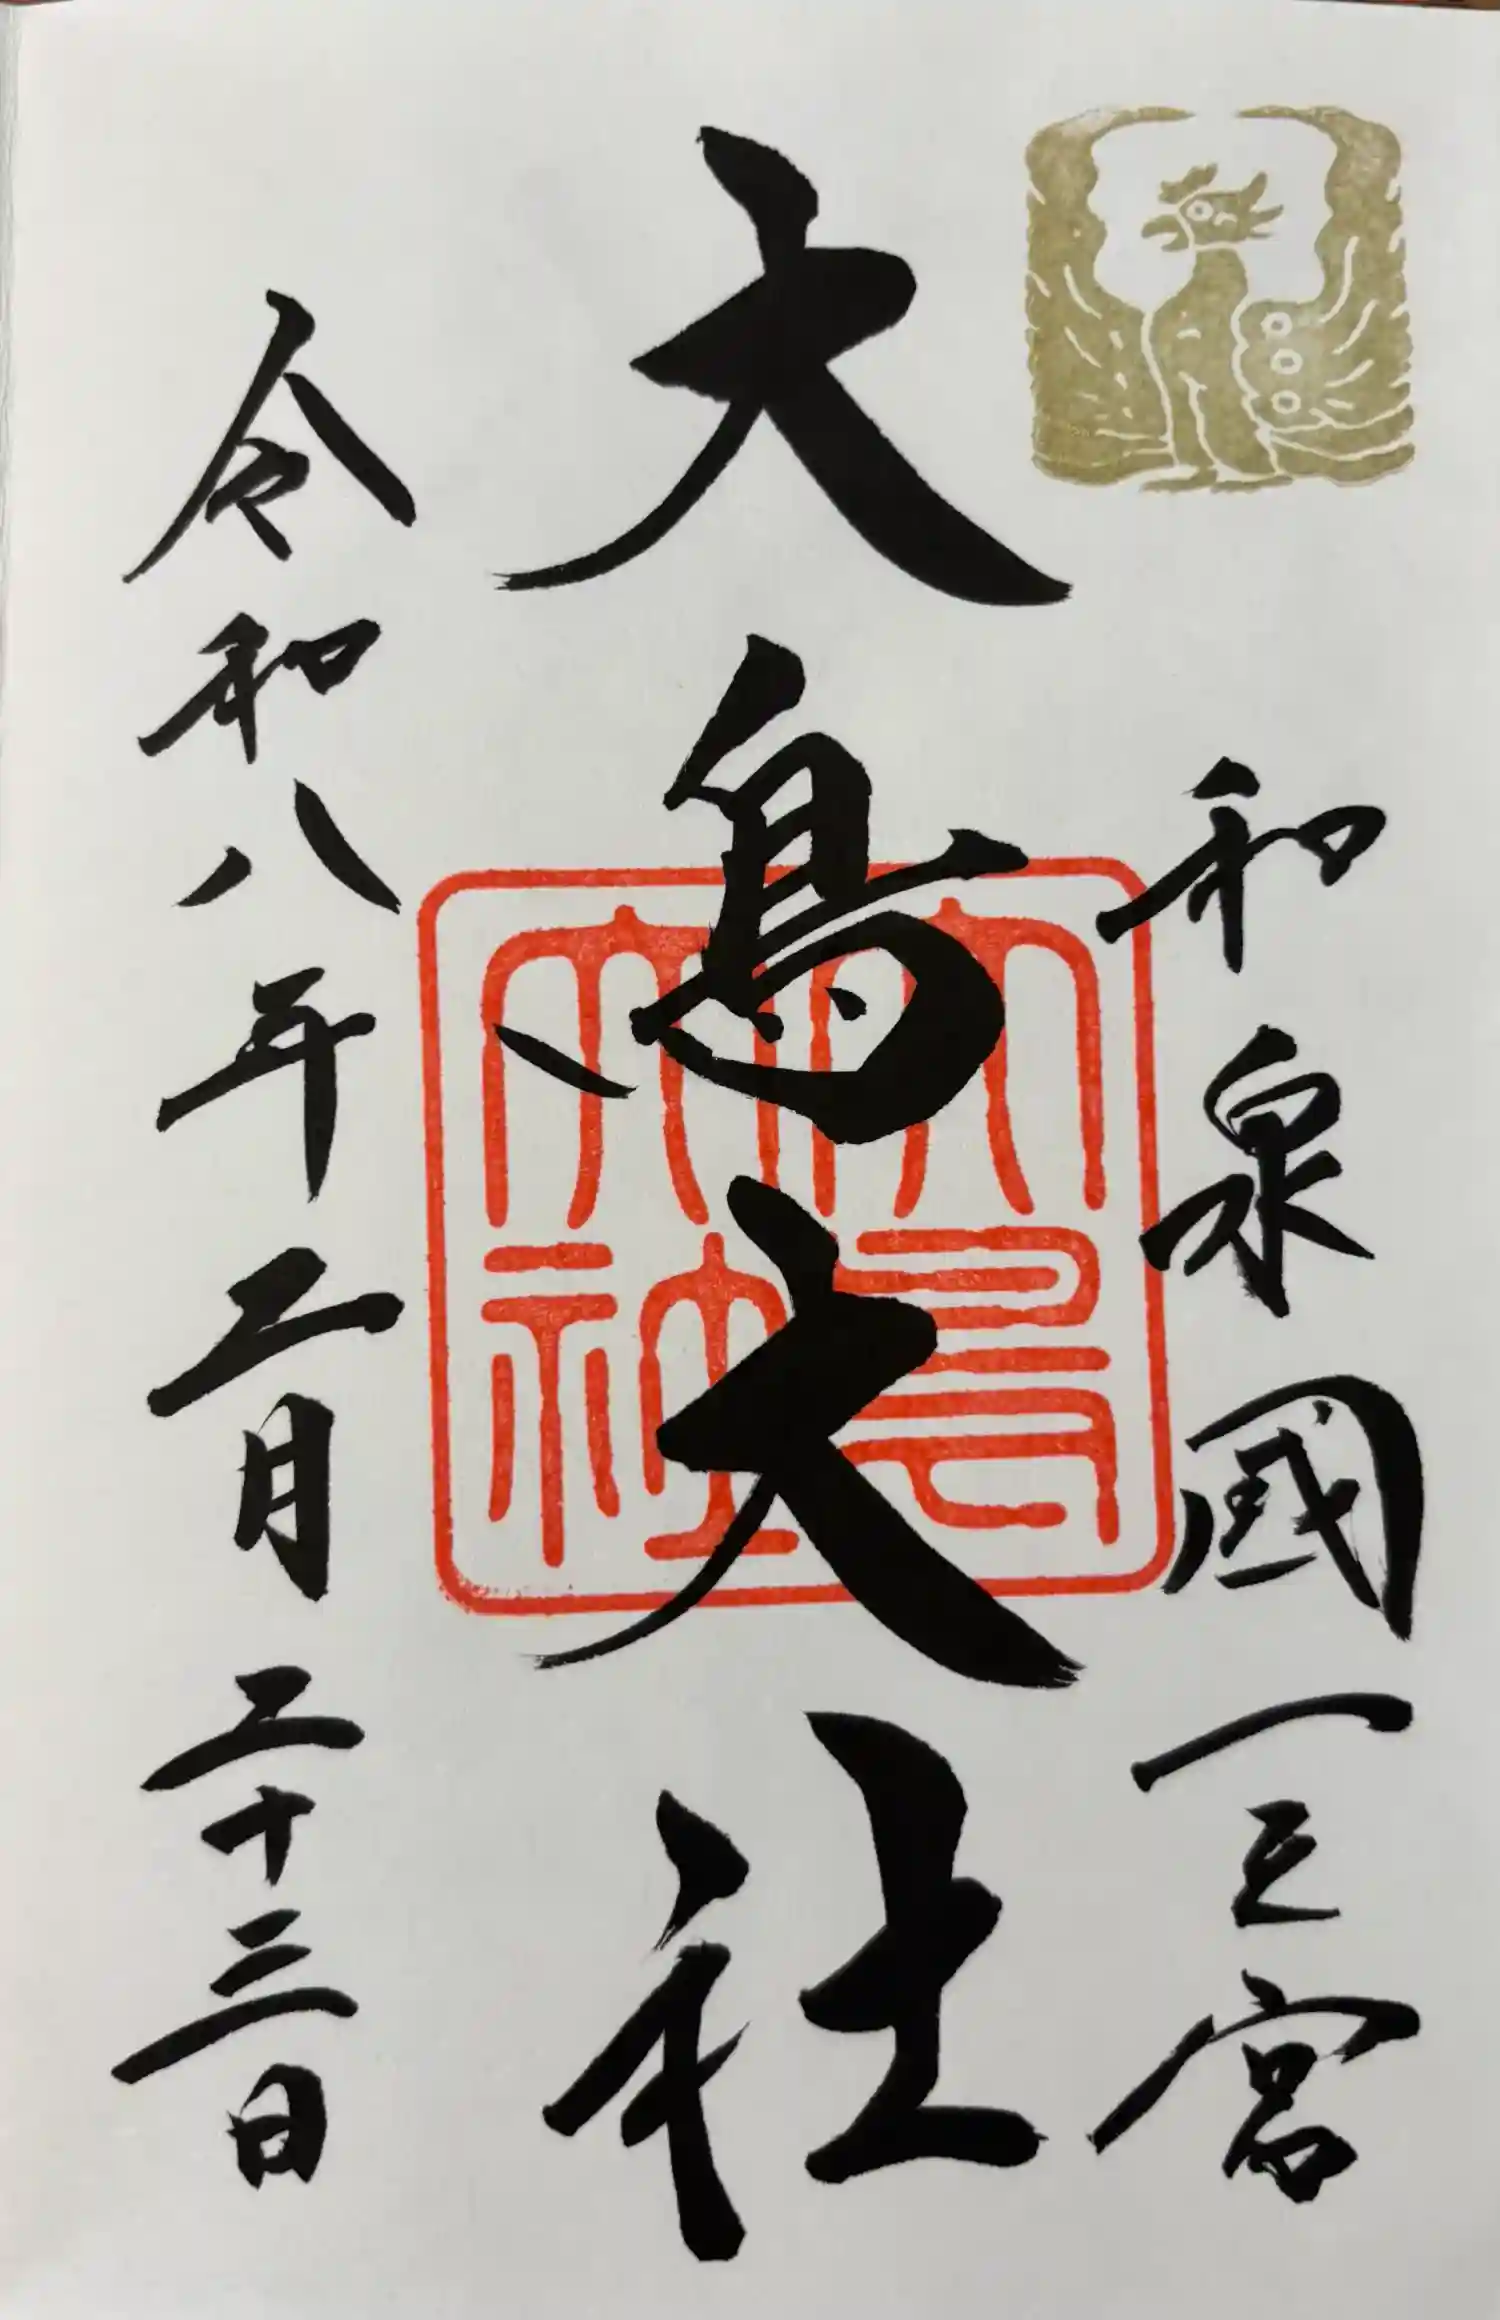 和泉國一之宮
大鳥大社
大鳥大社
令和八年二月二十三日